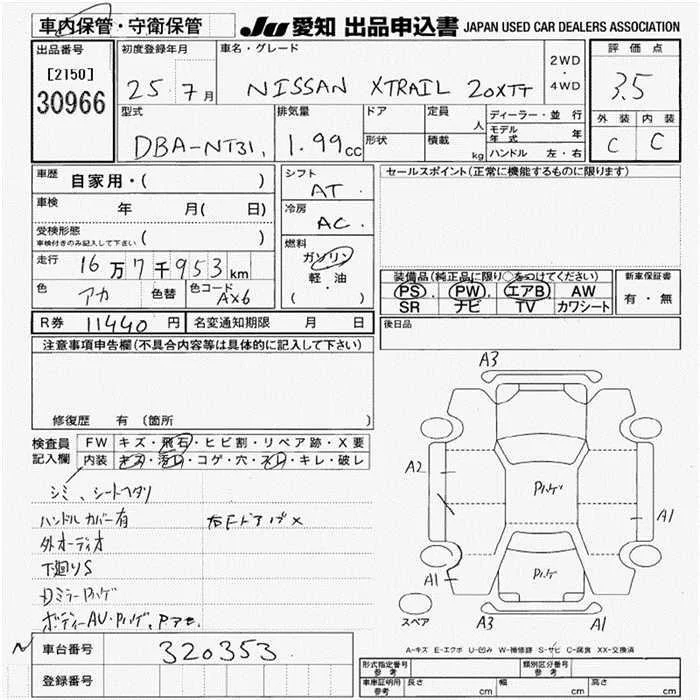 車内保管・守衛保管
JU 愛知 出品申込書 JAPAN USED CAR DEALERS ASSOCIATION
出品番号
[2150]
30966
初度登録年月
25.7月
車名・グレード
NISSAN XTRAIL 20XTT
2WD
・
4WD
評価点
3.5
外装 内装
C C
型式
DBA-NT31
排気量
1.99cc
ドア
形状
定員
人
積載
kg
ディーラー・並行
モデル年式 年
ハンドル 左・右
車歴 自家用・( )
車検 年 月( 日)
受検形態
車検付きのみ記入して下さい ( )
走行 16万7千953km
色 アカ 色替 色コード AX6
シフト
AT
冷房
AC
燃料
ガソリン
軽・油
( )
セールスポイント(正常に機能するものに限ります)
装備品(純正品に限り○をつけてください)
PS PW エアB AW
SR ナビ TV カワシート
新車保証書
有・無
後日品
R券 11440円 名変通知期限 月 日
注意事項申告欄(不具合内容等は具体的に記入して下さい)
修復歴 有 (箇所 )
検査員記入欄
FW キズ・飛石・ヒビ割・リペア跡・X要
内装 キズ・汚レ・コゲ・穴・スレ・キレ・破レ
シミ、シートヘタリ
ハンドルカバー有
外オーディオ
下廻りS
A3
A2
A1
A1
A3
A1
スペア
A-キズ E-エクボ U-凹み W-補修跡 S-サビ C-腐食 XX-交換済
車台番号 320353
登録番号
形式指定番号
参考
類別区分番号
参考
車庫証明用
参考
長さ cm 幅 cm 高さ cm